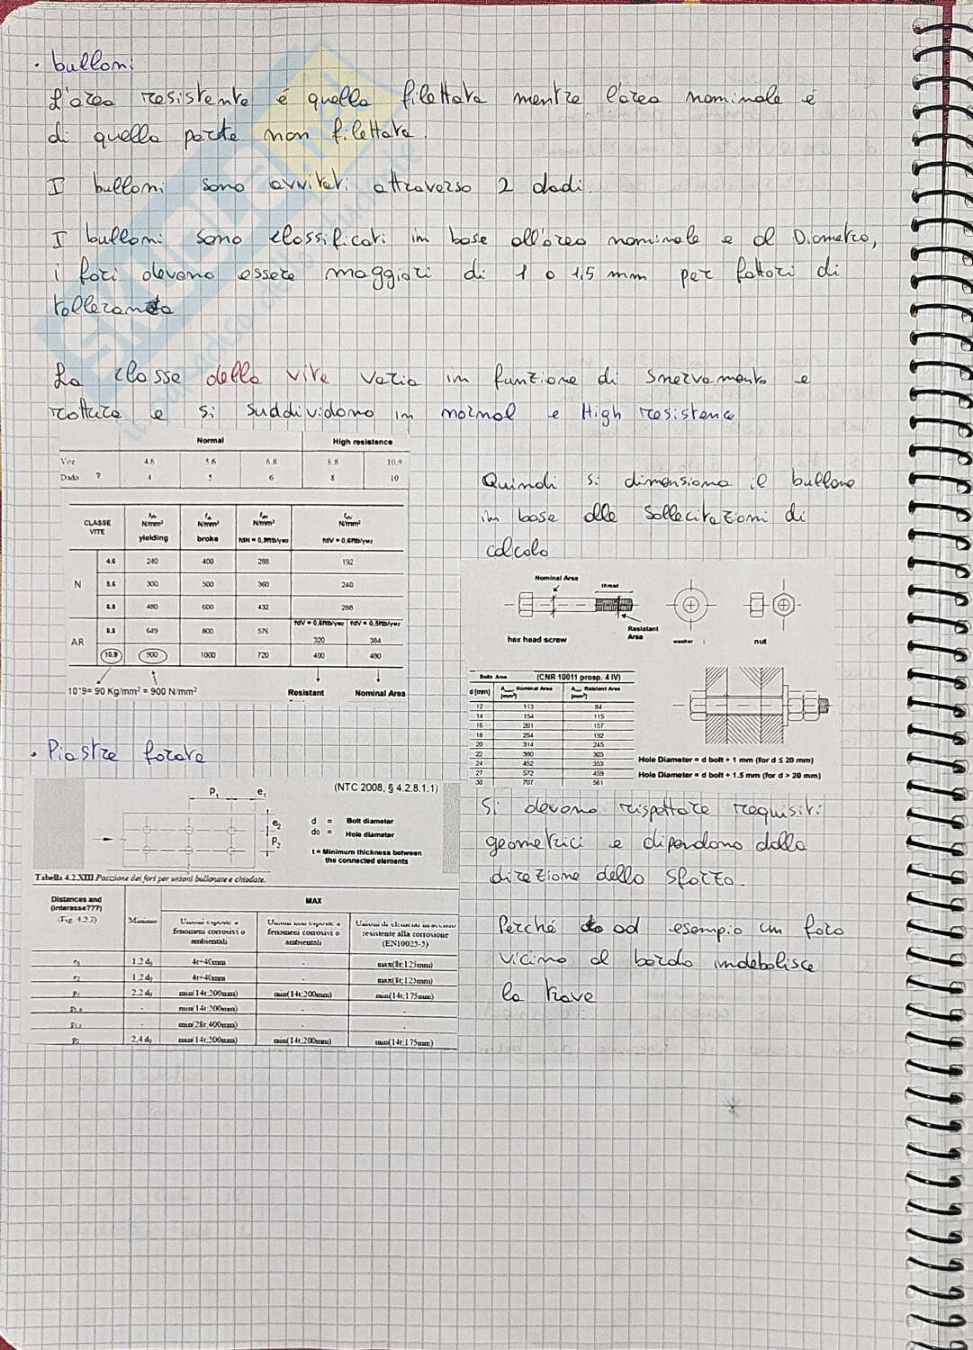 • bulloni
L'area resistente é quella filettata mentre l'area nominale é
di quella parte non filettata.
I bulloni sono avvitati attraverso 2 dadi.
I bulloni sono classificati in base all'area nominale e al Diametro,
i fori devono essere maggiori di 1 o 1,5 mm per fattori di
La classe della vite varia in funzione di snervamento e
rottura e si suddividono in normal e High resistence
Normal High resistance
Vite 4.6 5.6 6.8 8.8 10.9
Dado ? 4 5 6 8 10
Quindi si dimensiona il bullone
in base alle sollecitazioni di
calcolo
CLASSE VITE N/mm² yielding N/mm² broke N/mm² N/mm²
4.6 240 400 288 192
N 5.6 300 500 360 240
6.8 480 600 432 288
AR 8.8 649 800 576 320 384
10.9 900 1000 720 400 480
10*9= 90 Kg/mm² = 900 N/mm² Resistant Nominal Area
Nominal Area
thread
Resistant
Area
hex head screw washer nut
Bolts Area (CNR 10011 prosp. 4 IV)
d [mm] Nominal Area [mm²] Resistant Area [mm²]
12 113 84
14 154 115
16 201 157
18 254 192
20 314 245
22 380 303
24 452 353
27 572 459
30 707 561
Hole Diameter = d bolt + 1 mm (for d ≤ 20 mm)
Hole Diameter = d bolt + 1.5 mm (for d > 20 mm)
• Piastre forate
(NTC 2008, § 4.2.8.1.1)
P₁ e₁
e₂
P₂
d = Bolt diameter
do = Hole diameter
t = Minimum thickness between
the connected elements
Si devono rispettare requisiti
geometrici e dipendono dalla
direzione dello sforzo.
Perché ad esempio un foro
vicino al bordo indebolisce
la trave
Tabella 4.2.XIII Posizione dei fori per unioni bullonate e chiodate.
Distances and
(interasse???)
(Fig. 4.2.2)
Minimo
MAX
Unioni esposte a
fenomeni corrosivi o
ambientali
Unioni non esposte a
fenomeni corrosivi o
ambientali
Unioni di elementi in acciaio
resistente alla corrosione
(EN10025-5)
e₁ 1.2 d₀ 4t+40mm - max(8t;125mm)
e₂ 1.2 d₀ 4t+40mm - max(8t;125mm)
p₁ 2.2 d₀ min(14t;200mm) min(14t;200mm) min(14t;175mm)
- min(14t;200mm) - -
- min(28t;400mm) - -
p₂ 2.4 d₀ min(14t;200mm) min(14t;200mm) min(14t;175mm)